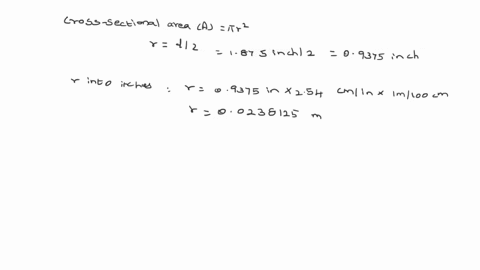 Cross-sectional area (A) = πr²
r = d/2 = 1.875 inch/2 = 0.9375 inch
r into inches : r = 0.9375 in × 2.54 cm/in × 1m/100 cm
r = 0.0238125 m